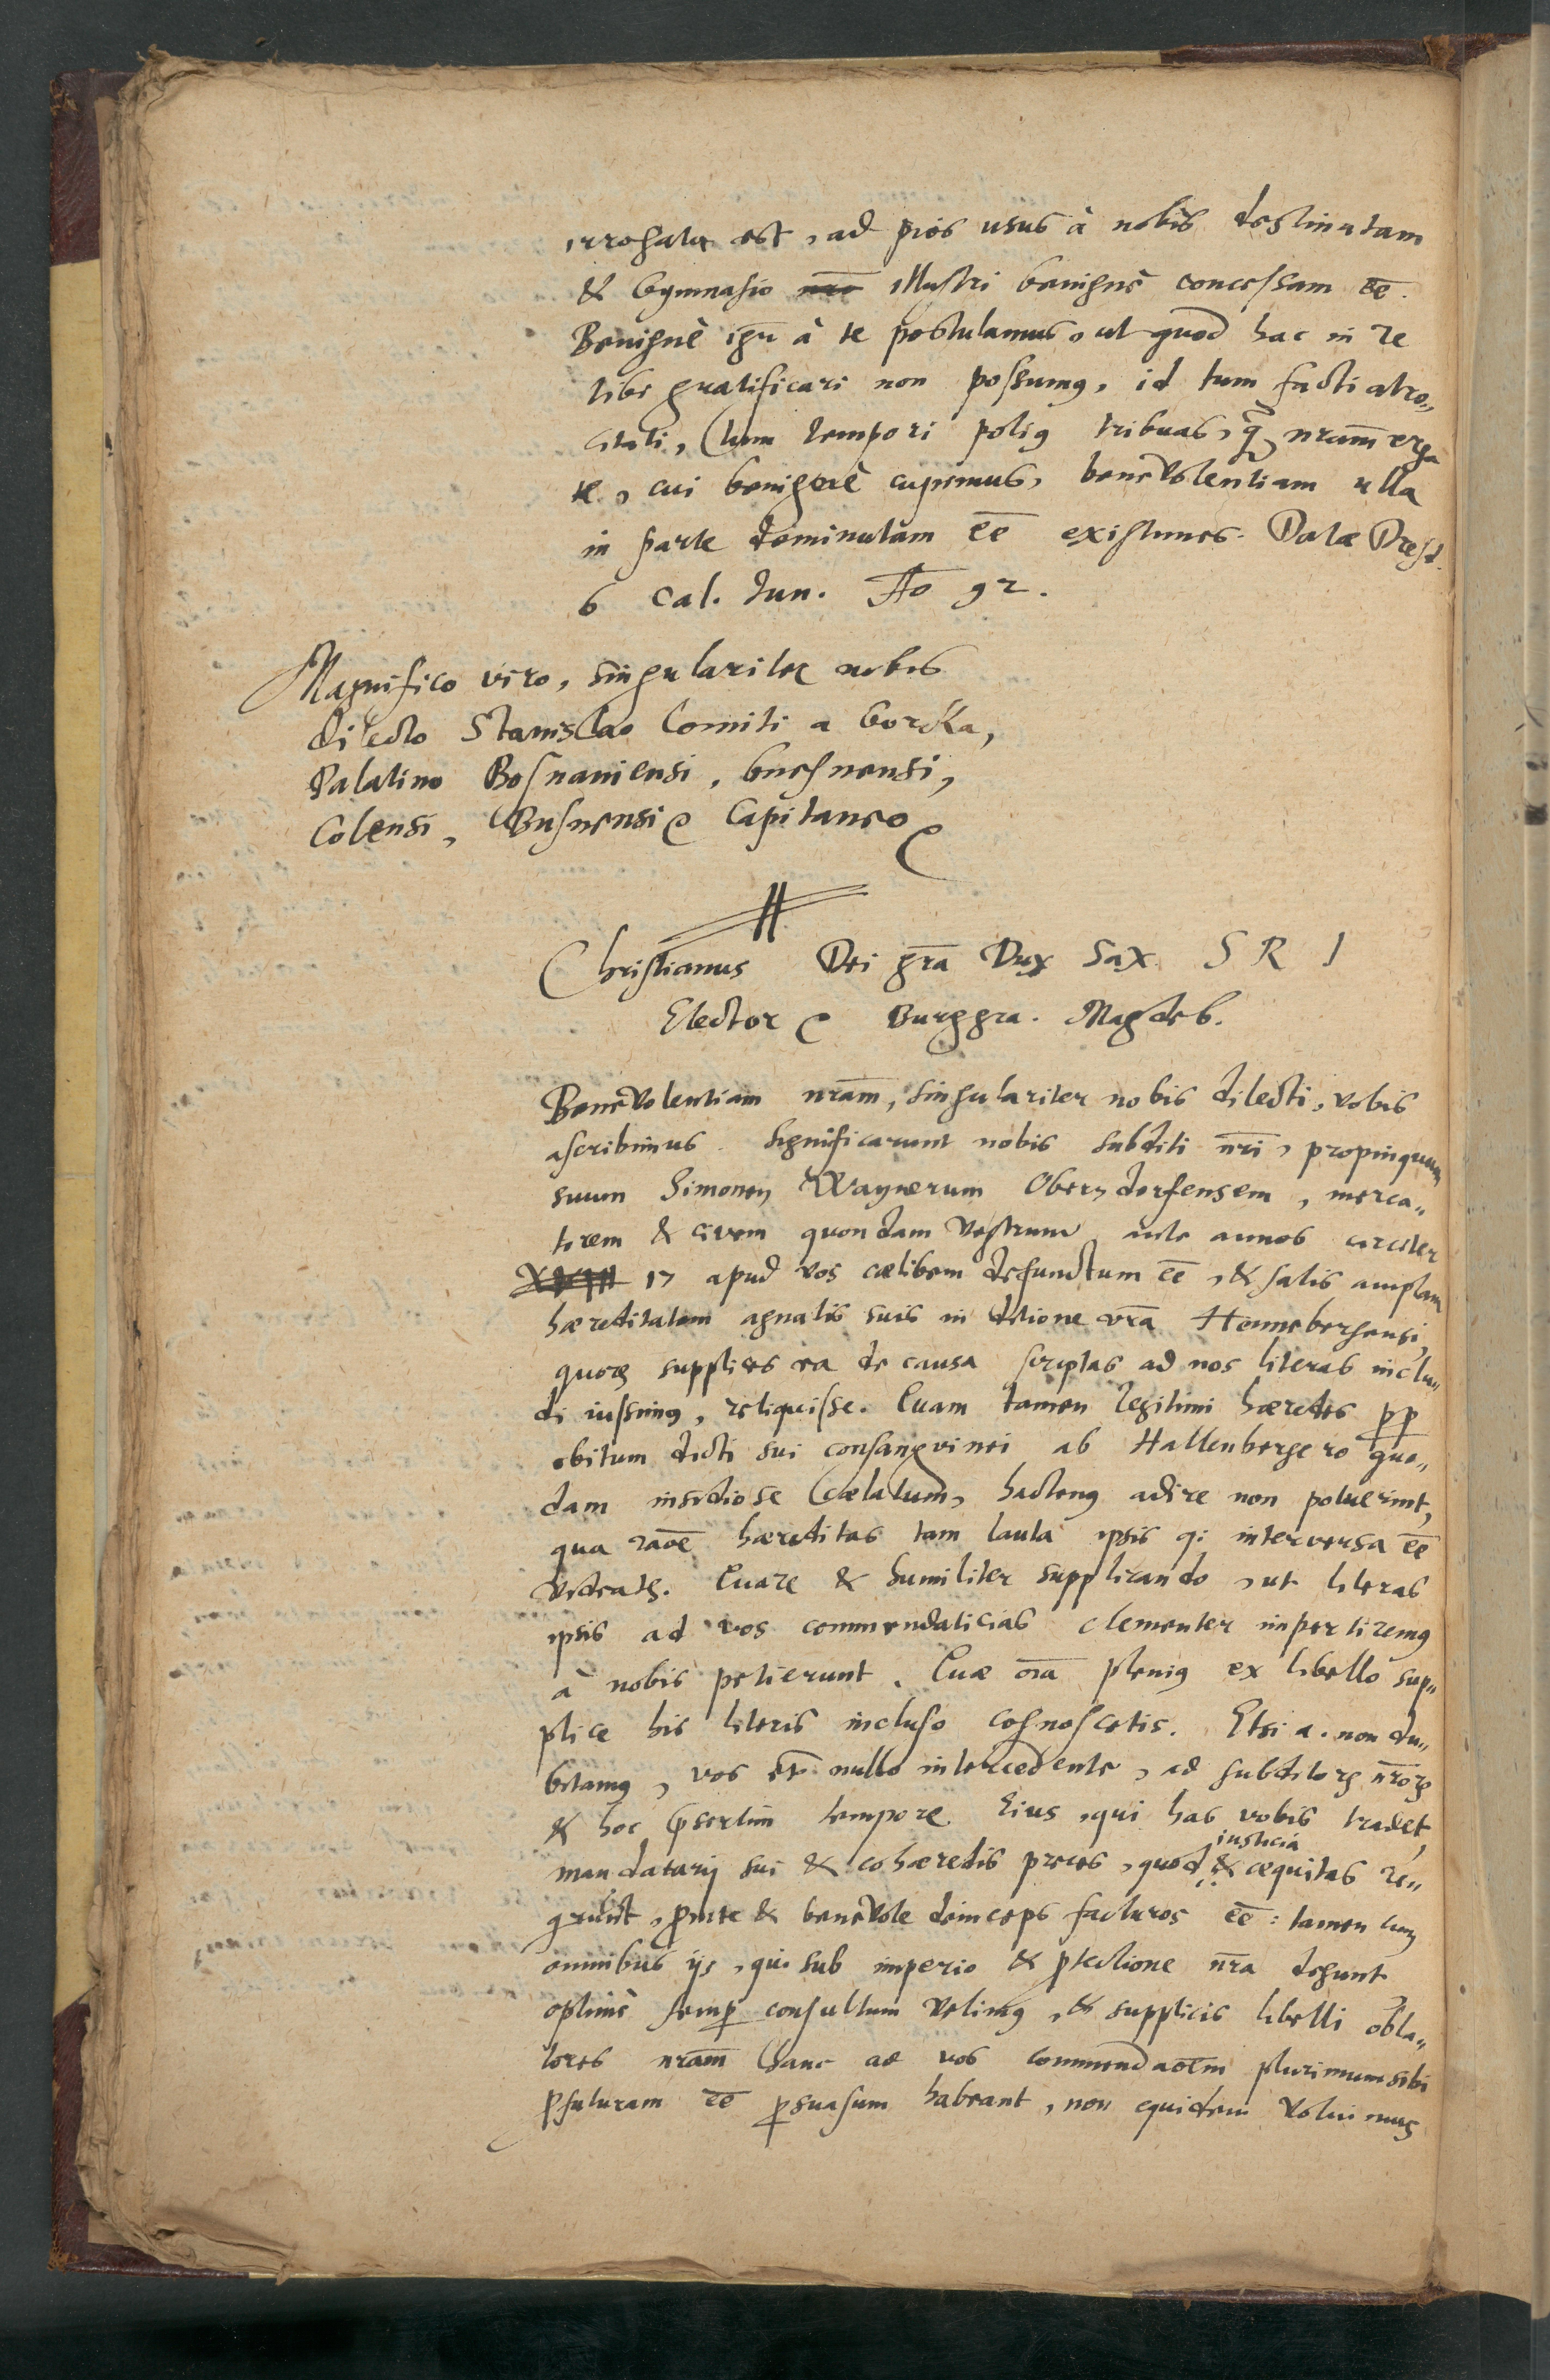 irrogata est, ad pios usus à nobis destinatam
& Gymnasio n̄ro illustri benignè concessam eē.
Benignè igr̄ à te postulamus, ut quod hac in re
tibi gratificari non possumꝰ, id tum facti atro„
citati, tum tempori potiꝰ tribuas, q̃ nram̄ erga
te, cui benignè cupimus, benevolentiam ulla
in parte deminutam eē existimes. Datæ Dresd.
6 Cal. Iun. Ao 92.
Magnifico viro, singulariter nobis
dilecto Stanislao Comiti a Gorcka,
Palatino Bosnaniensi, Gnesnensi,
Colensi, Busnensiq Capitaneo
Christianus Dei gr̄a Dux Sax S R I
Elector & Burggra. Magdeb.
Benevolentiam nram̄, singulariter nobis dilecti, vobis
ascribimus. Significarunt nobis subditi nr̄i, propinquum
suum Simonem Waynerum Oberndorfensem, merca„
torem & civem quondam vestrum ante annos circiter
17 apud vos cælibem defunctum eē, & satis amplam
hæreditatem agnatis suis in ditione nr̄a Hennebergensi,
quorꝫ supplices ea de causa scriptas ad nos literas inclu„
di iussimꝰ, reliquisse. Quam tamen legitimi hæredes pp
obitum dicti sui consangvinei ab Hallenbergero quo„
dam insidiose cælatum, hactenꝰ adire non potuerint,
qua raōē hæreditas tam lauta ipsis qi interversa eē
videatꝫ. Quare & humiliter supplicando, ut literas
ipsis ad vos commendaticias clementer impertiremꝰ
à nobis petierunt. Quæ oīa pleniꝰ ex libello sup„
plice his literis incluso cognoscetis. Etsi a. non du„
bitamꝰ, vos et nullo intercedente, ad subditorꝫ nr̄orꝫ
& hoc p̄sertim tempore Eius, qui has vobis tradet,
mandatarij sui & cohæredis preces, quod iusticia & æquitas re„
grunt, prōpte & benevole deinceps facturos eē: tamen cum
omnibus ijs, qui sub imperio & ptectione nr̄a degunt
optimè semp consultum velimꝰ, & supplicis libelli obla„
tores nram̄ hanc ad vos commendaoēm plurimum sibi
pfuturam eē psuasum habeant, non equidem voluimus